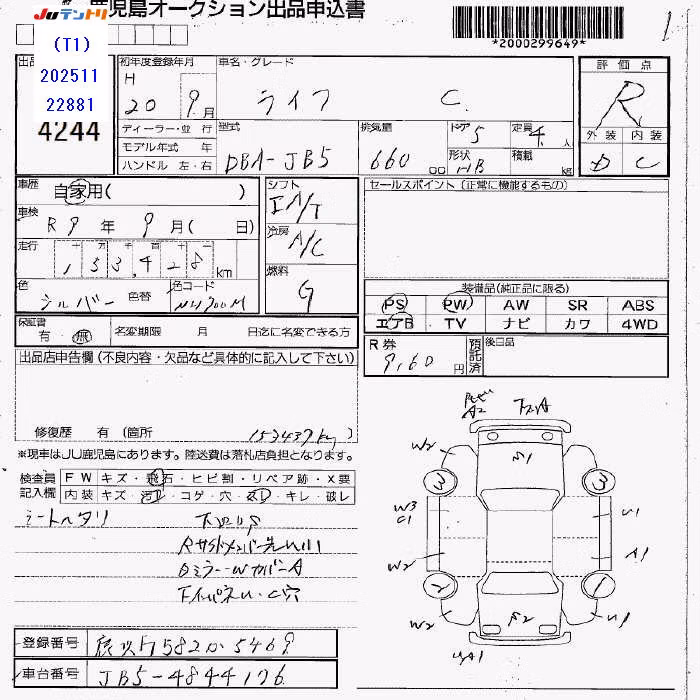 JUテントリ 鹿児島オークション出品申込書
*2000299649*
(T1)
202511
22881
4244
初年度登録年月
H
20 9月
車名・グレード
ライフ C
評価点
R
外装 内装
D C
ディーラー・並行
モデル年式 年
ハンドル 左・右
型式
DBA-JB5
排気量
660 cc
ドア 5
定員 4人
形状 HB
積載 kg
車歴
自家用( )
車検
R 9年 9月( 日)
走行
十 万 千 百 十
153,428 km
色
シルバー 色替
色コード
NH700M
シフト
I A/T
冷房
A/C
燃料
G
セールスポイント (正常に機能するもの)
装備品(純正品に限る)
PS PW AW SR ABS
エアB TV ナビ カワ 4WD
保証書
有・無
名変期限 月 日迄に名変できる方
R券
9,160円
預託済
後日品
出品店申告欄(不良内容・欠品など具体的に記入して下さい)
修復歴 有 (箇所 153437kg)
※現車はJU鹿児島にあります。陸送費は落札店負担となります。
検査員記入欄
FW キズ・飛石・ヒビ割・リペア跡・X要
内装 キズ・汚れ・コゲ・穴・スレ・キレ・破レ
シートヘタリ 下回りS
Rサイドメンバー先
DミラーWカバーA
C穴
A2 A
W2 S1
3 3
W3
C1 U1
W2 A1
2 1
W2 S2 U1
A1
登録番号 582か5469
車台番号 JB5-4844176